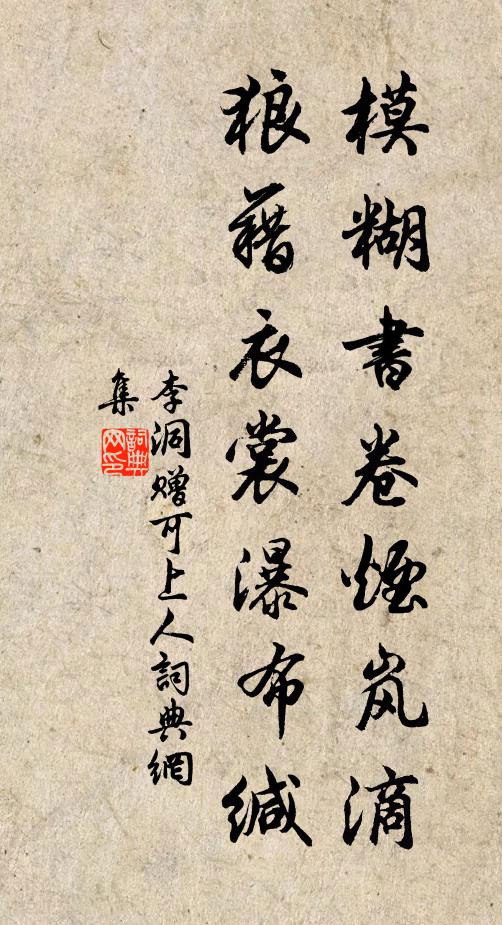 模糊書卷煙岚滴
狼藉衣裳瀑布緘
李洞贈可上人詞典網
集
詞典网印